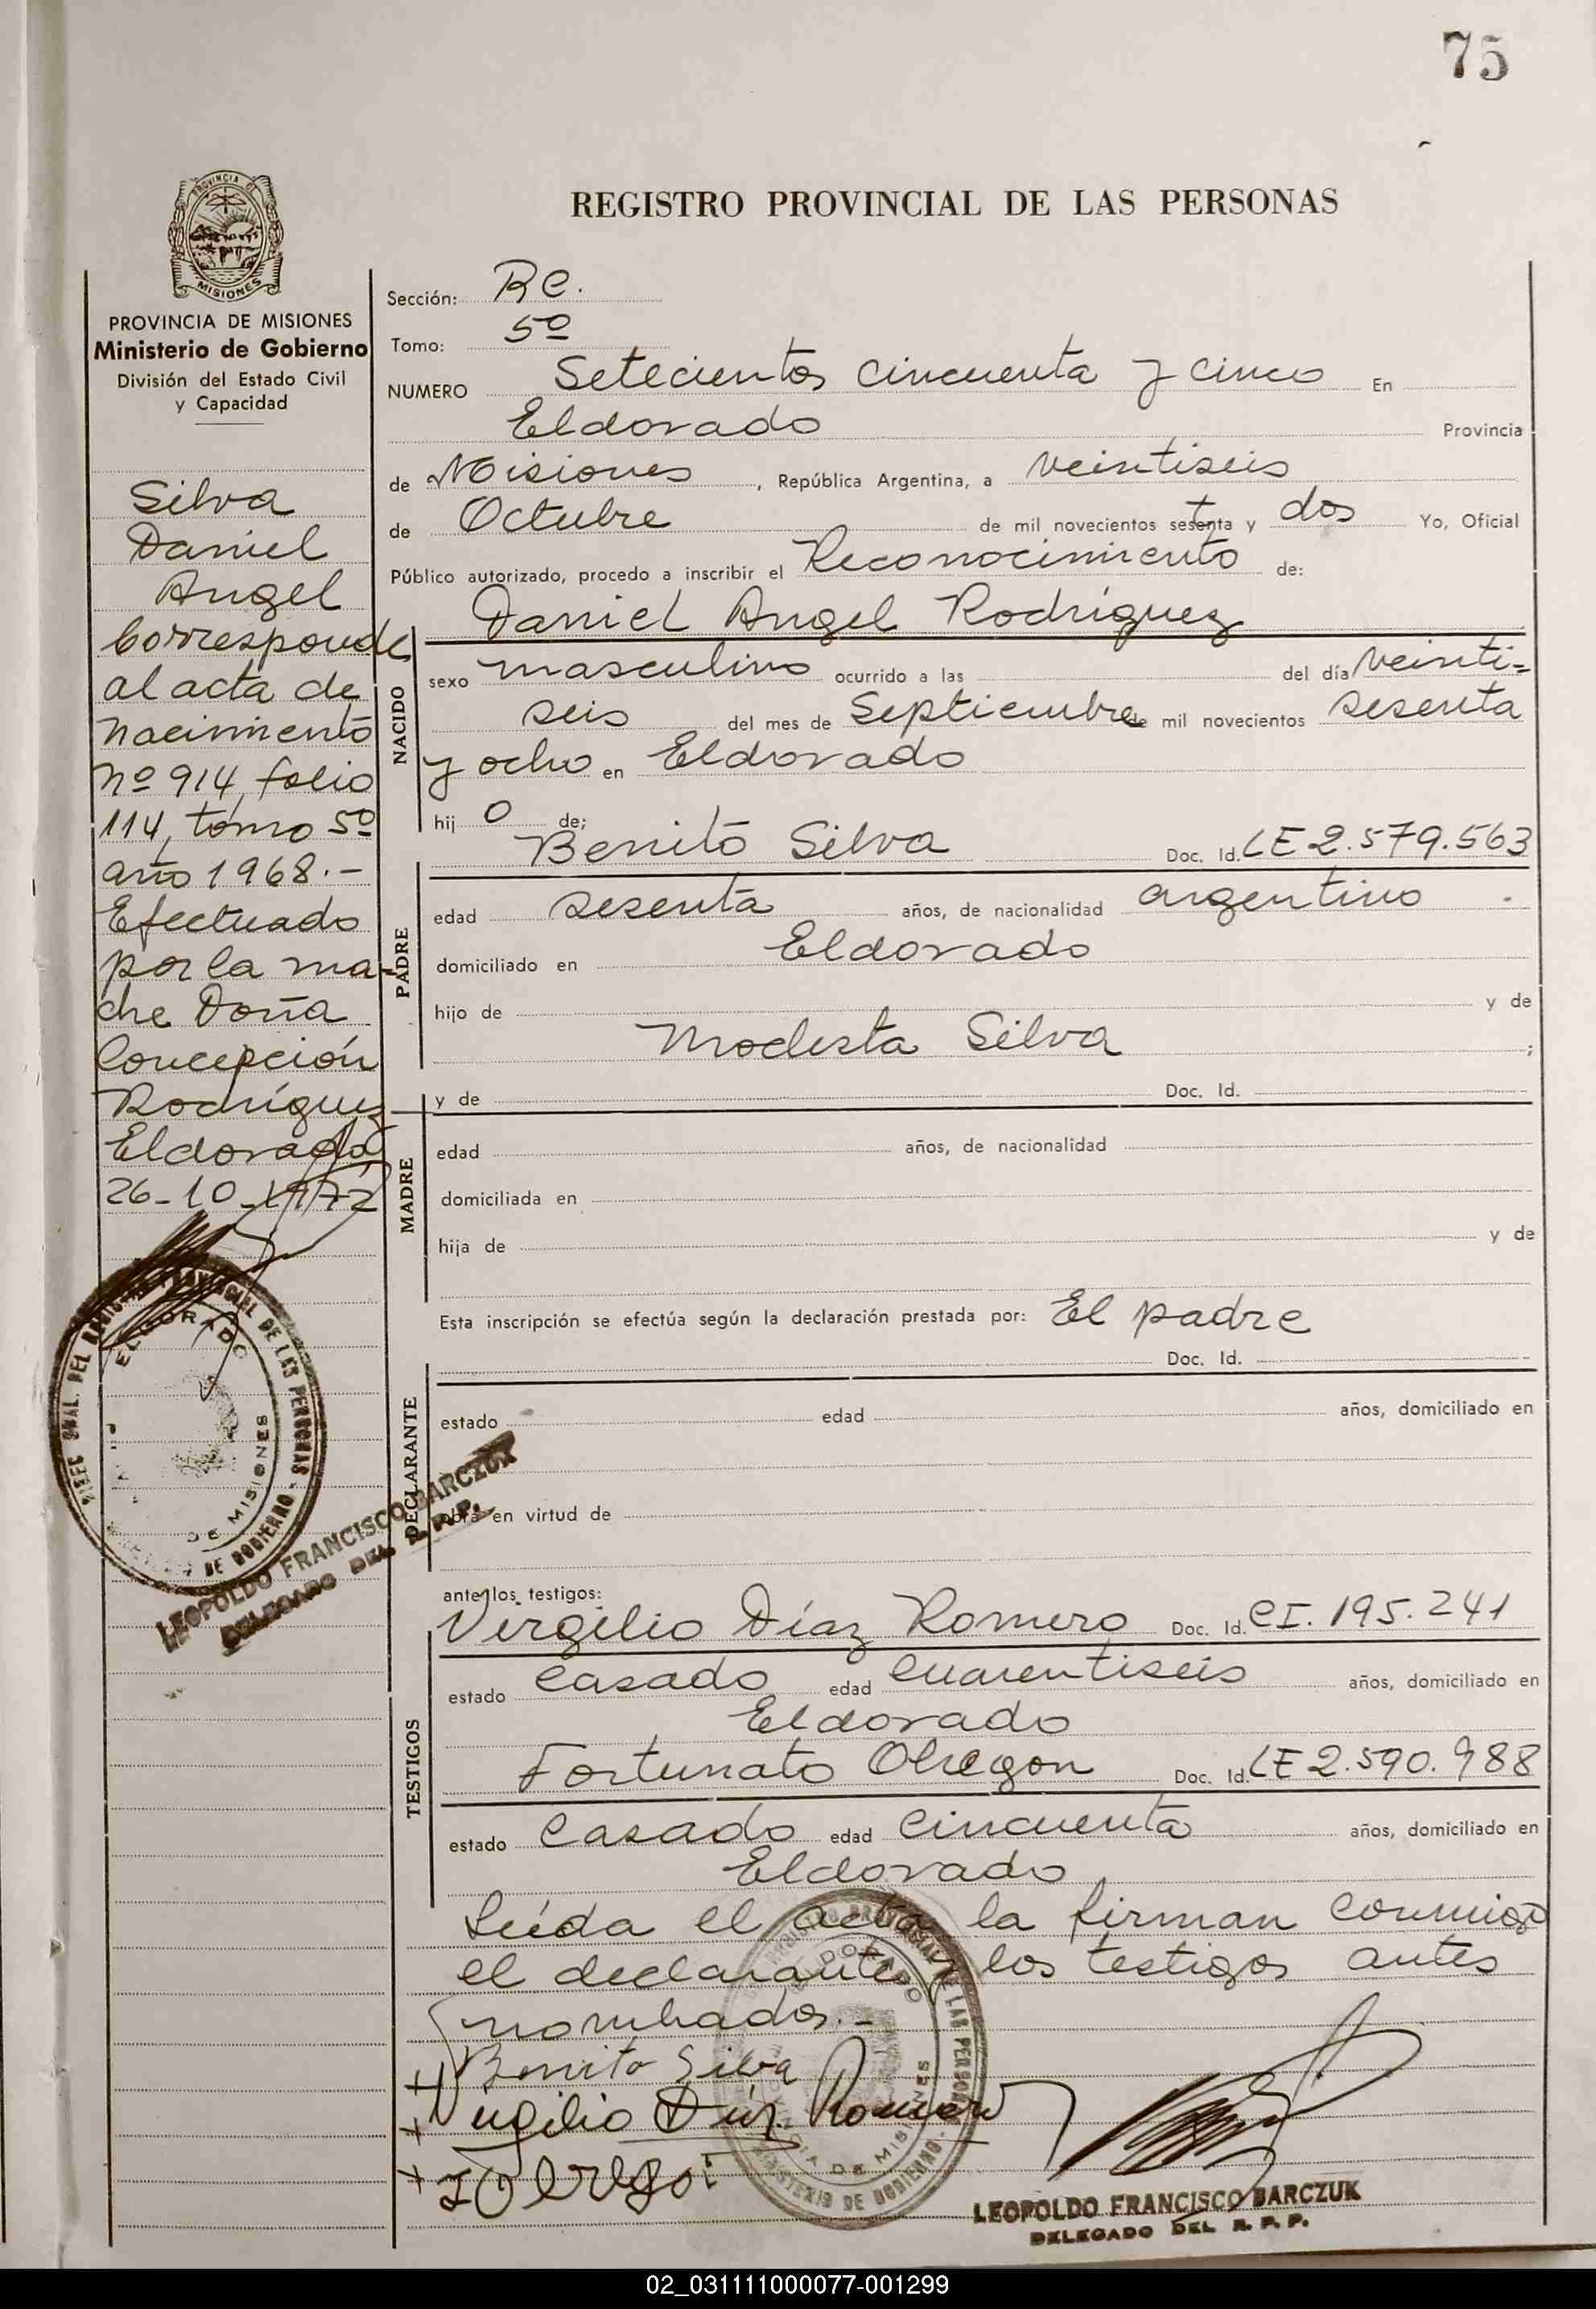 75
REGISTRO PROVINCIAL DE LAS PERSONAS
PROVINCIA DE MISIONES
MISIONES
Ministerio de Gobierno
División del Estado Civil
y Capacidad
Silva
Daniel
Angel
Corresponde
al acta de
nacimiento
nº 914, folio
114, tomo 5º
año 1968.-
Efectuado
por la ma-
dre Doña
Concepción
Rodríguez
Eldorado,
26-10-1972
ELDORADO
DE MISIONES
LEOPOLDO FRANCISCO BARCZUK
DELEGADO DEL R. P. P.
Sección: Rc.
Tomo: 5º
NUMERO Setecientos cincuenta y cinco En
Eldorado Provincia
de Misiones, República Argentina, a veintiseis
de Octubre de mil novecientos setenta y dos Yo, Oficial
Público autorizado, procedo a inscribir el Reconocimiento de:
Daniel Angel Rodríguez
NACIDO
sexo masculino ocurrido a las del día veinti=
seis del mes de Septiembre de mil novecientos sesenta
y ocho en Eldorado
hij o de;
Benito Silva Doc. Id. LE 2.579.563
PADRE
edad sesenta años, de nacionalidad argentino
domiciliado en Eldorado
hijo de y de
Modesta Silva ;
y de Doc. Id.
MADRE
edad años, de nacionalidad
domiciliada en
hija de y de
Esta inscripción se efectúa según la declaración prestada por: El padre
Doc. Id.
DECLARANTE
estado edad años, domiciliado en
obra en virtud de
ante los testigos:
Virgilio Díaz Romero Doc. Id. CI. 195.241
TESTIGOS
estado Casado edad cuarentiseis años, domiciliado en
Eldorado
Fortunato Obregon Doc. Id. LE 2.590.988
estado Casado edad Cincuenta años, domiciliado en
Eldorado
Leída el acta, la firman conmigo
el declarante y los testigos antes
nombrados.-
Benito Silva
Virgilio Díaz Romero
LEOPOLDO FRANCISCO BARCZUK
DELEGADO DEL R. P. P.
02_031111000077-001299